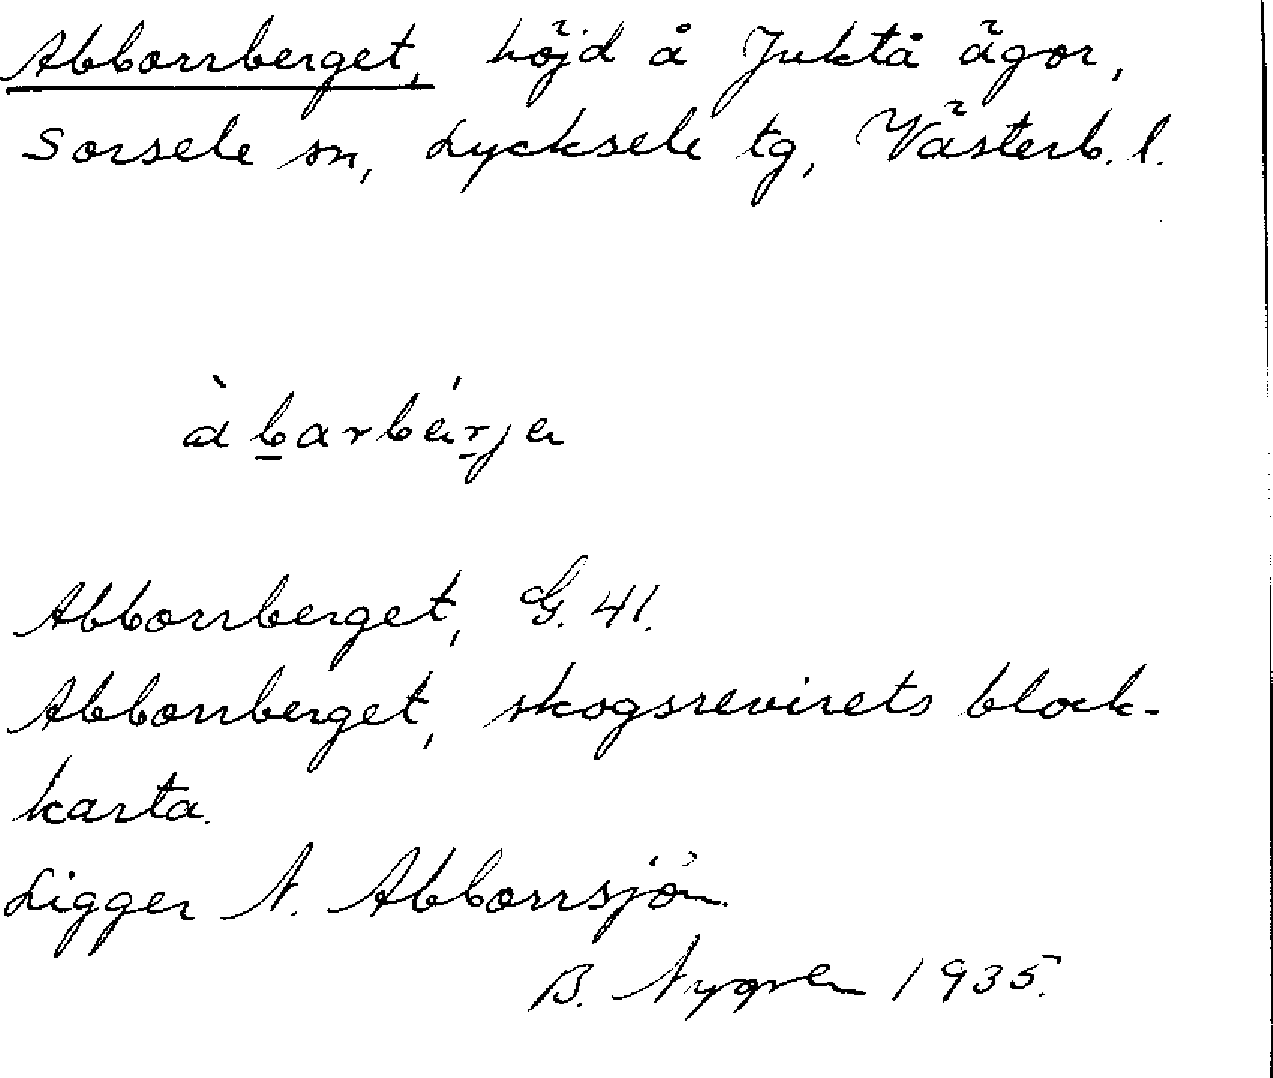 Abborrberget, höjd å Juktå ägor,
Sorsele sn, Lycksele tg, Västerb. l.
àbarbérje
Abborrberget, G. 41.
Abborrberget, skogsrevirets block-
karta.
Ligger N. Abborrsjön.
B. Nygren 1935.